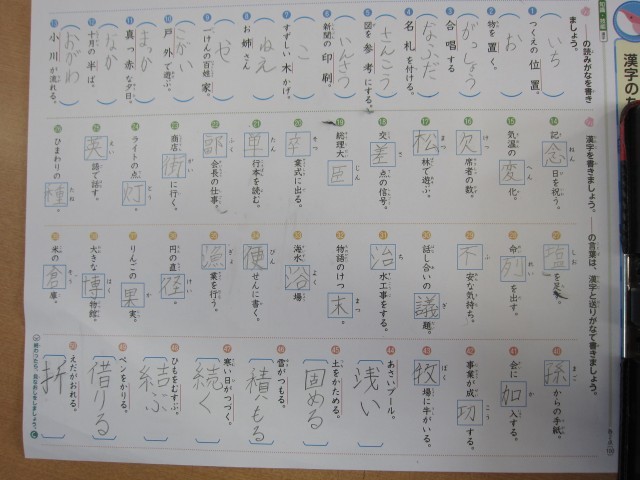 漢字の
の読みがなを書き
ましょう。
1 つくえの位置。 いち
2 物を置く。 お
3 合唱する がっしょう
4 名札を付ける。 なふだ
5 図を参考にする。 さんこう
6 新聞の印刷。 いんさつ
7 すずしい木かげ。 こ
8 お姉さん ねえ
9 ごけんの百姓家。 や
10 戸外で遊ぶ。 こがい
11 真っ赤な夕日。 まか
12 十月の半ば。 なか
13 小川が流れる。 おがわ
漢字を書きましょう。――の言葉は、漢字と送りがなで書きましょう。
14 記念日を祝う。 ねん
15 気温の変化。 へん
16 欠席者の数。 けっ
17 松林で遊ぶ。 まつ
18 交差点の信号。 さ
19 総理大臣 じん
20 卒業式に出る。 そつ
21 単行本を読む。 たん
22 副会長の仕事。 ふく
23 商店街に行く。 がい
24 ライトの点灯。 とう
25 英語で話す。 えい
26 ひまわりの種。 たね
27 塩を足 しお
28 命列を出す。 れい
29 不安な気持ち。 ふ
30 話し合いの議題。 ぎ
31 治水工事をする。 ち
32 物語のけつ末。 まつ
33 海水浴場 よく
34 便せんに書く。 びん
35 漁業を行う。 ぎょ
36 円の直径。 けい
37 りんごの果実。 か
38 大きな博物館。 はく
39 米の倉庫。 そう
40 孫からの手紙。 まご
41 会に加入する。 か
42 事業が成功する。 こう
43 牧場に牛がいる。 ぼく
44 あさいプール。 浅い
45 土をかためる。 固める
46 雪がつもる。 積もる
47 寒い日がつづく。 続く
48 ひもをむすぶ。 結ぶ
49 ペンをかりる。 借りる
50 えだがおれる。 折
終わったら、見なおしをしましょう。